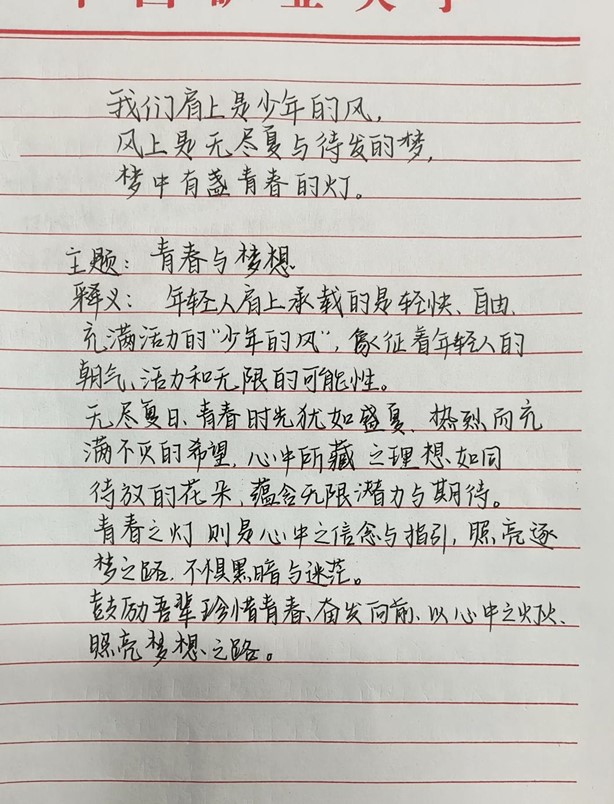 我们肩上是少年的风，
风上是无尽夏与待发的梦，
梦中有盏青春的灯。
主题：青春与梦想
释义：年轻人肩上承载的是轻快、自由、
充满活力的“少年的风”，象征着年轻人的
朝气、活力和无限的可能性。
无尽夏日、青春时光犹如盛夏、热烈而充
满不灭的希望，心中所藏之理想如同
待放的花朵、蕴含无限潜力与期待。
青春之灯则是心中之信念与指引，照亮逐
梦之路、不惧黑暗与迷茫。
鼓励吾辈珍惜青春、奋发向前、以心中之灯火、
照亮梦想之路。